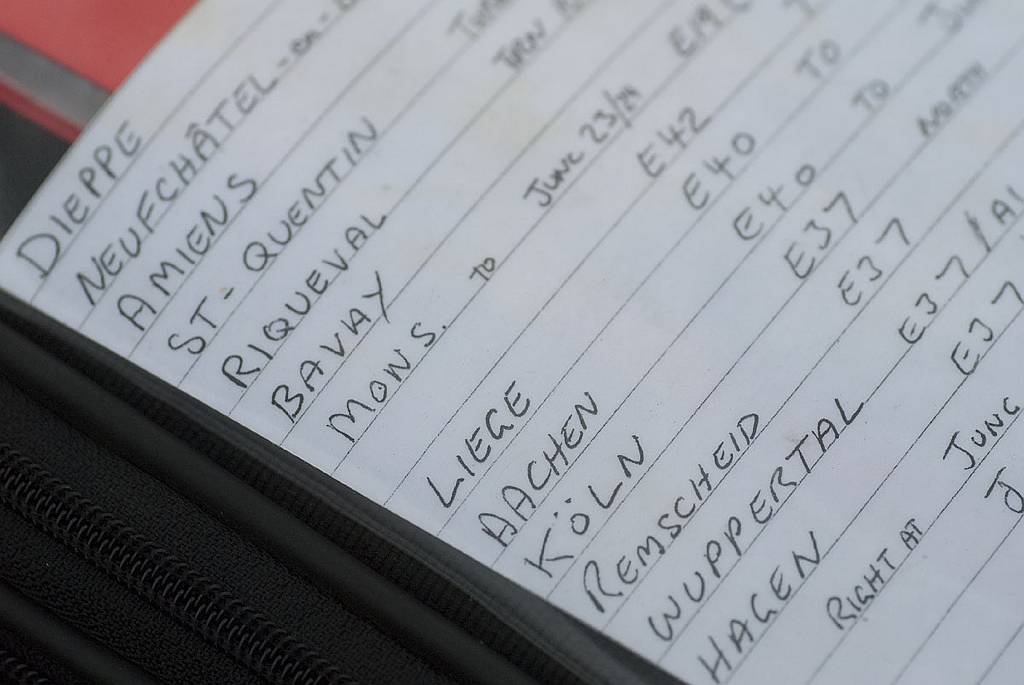 DIEPPE
NEUFCHÂTEL-en-
AMIENS
ST- QUENTIN
RIQUEVAL
BAVAY
MONS. TO JUNC 23/24 E19
E42
LIEGE E40 TO
AACHEN E40 TO
KÖLN E37 NORTH
REMSCHEID E37
WUPPERTAL E37/A1
HAGEN E37
RIGHT AT JUNC